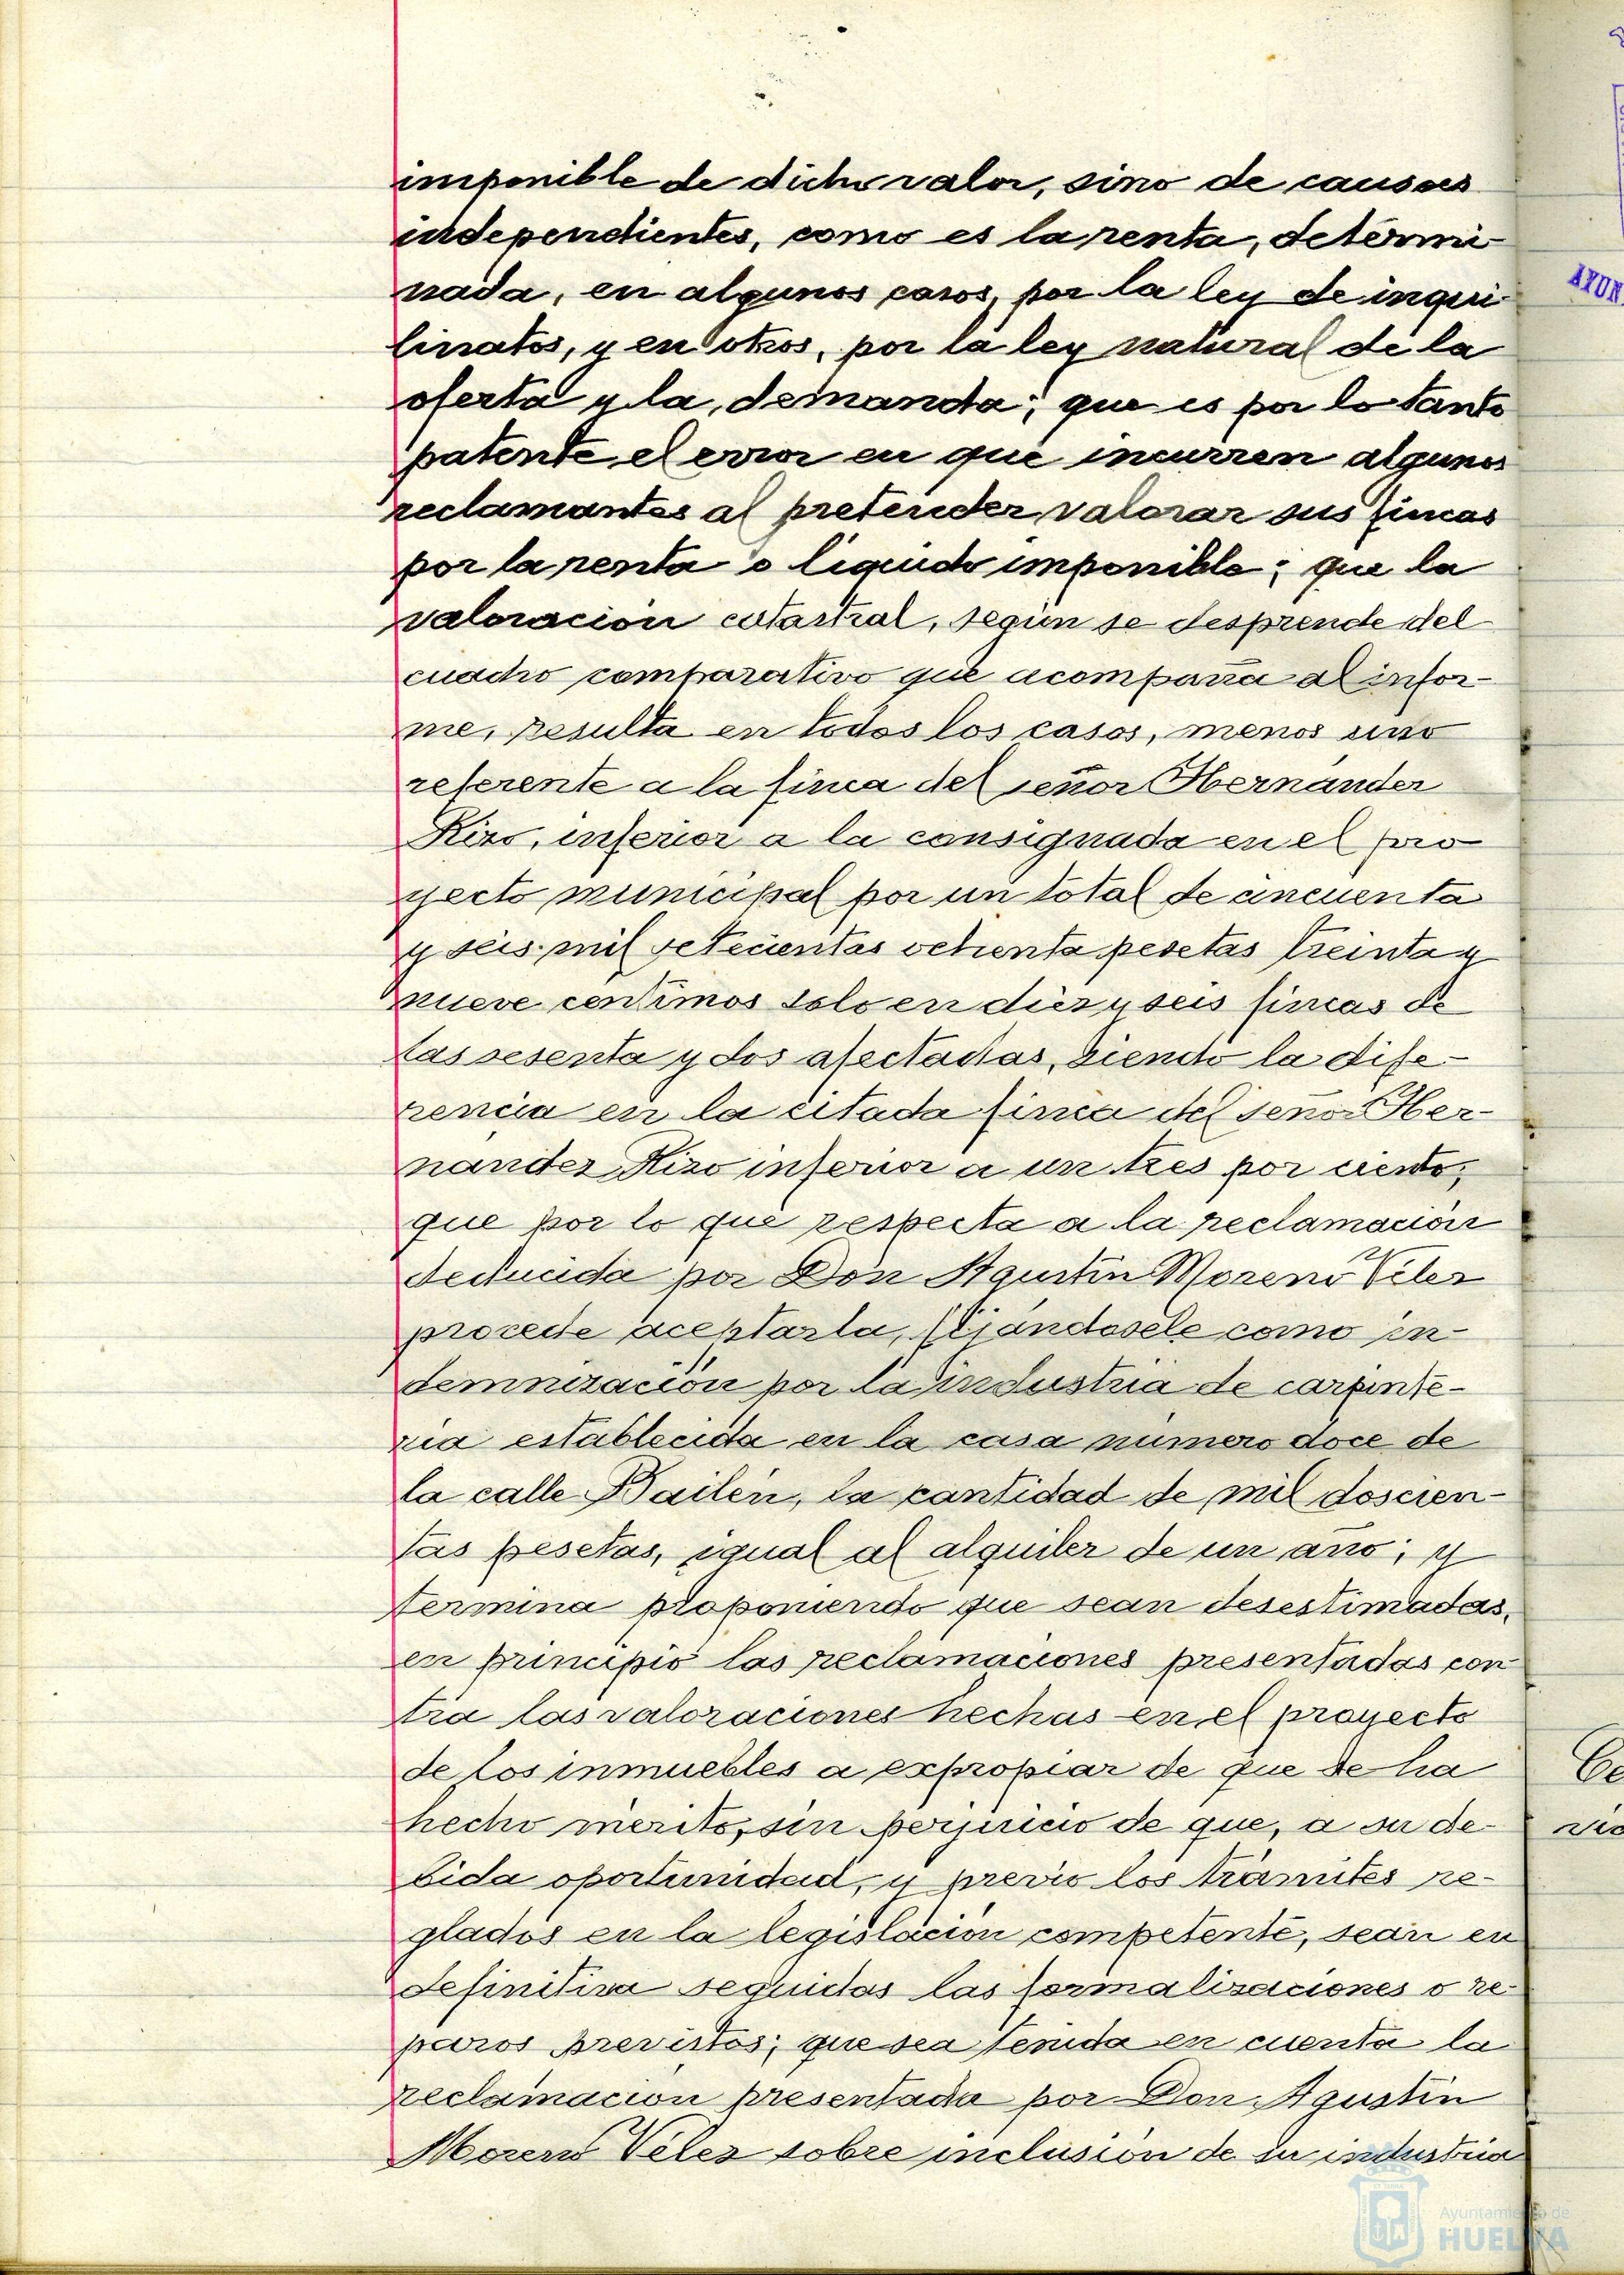 imponible de dicho valor, sino de causas
independientes, como es la renta, determi-
nada, en algunos casos, por la ley de inqui-
linatos, y en otros, por la ley natural de la
oferta y la demanda; que es por lo tanto
patente el error en que incurren algunos
reclamantes al pretender valorar sus fincas
por la renta o liquido imponible; que la
valoración catastral, según se desprende del
cuadro comparativo que acompaña al infor-
me, resulta en todos los casos, menos uno
referente a la finca del señor Hernández
Rizo, inferior a la consignada en el pro
yecto municipal por un total de cincuenta
y seis mil setecientas ochenta pesetas treinta y
nueve centimos solo en diez y seis fincas de
las sesenta y dos afectadas, siendo la dife-
rencia en la citada finca del señor Her-
nández Rizo inferior a un tres por ciento;
que por lo que respecta a la reclamación
deducida por Don Agustin Moreno Velez
procede aceptarla, fijandosele como in-
demnización por la industria de carpinte-
ria establecida en la casa numero doce de
la calle Bailén, la cantidad de mil doscien-
tas pesetas, igual al alquiler de un año; y
termina proponiendo que sean desestimadas,
en principio las reclamaciones presentadas con
tra las valoraciones hechas en el proyecto
de los inmuebles a expropiar de que se ha
hecho mérito, sin perjuicio de que, a su de-
bida oportunidad, y previo los trámites re-
glados en la legislación competente, sean en
definitiva seguidas las formalizaciones o re-
paros previstos; que sea tenida en cuenta la
reclamación presentada por Don Agustin
Moreno Vélez sobre inclusión de su industria
AYUN
Ayuntamiento de
HUELVA